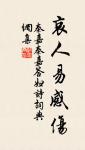 哀人易感傷
秦嘉秦嘉答妇詩詞典
網集